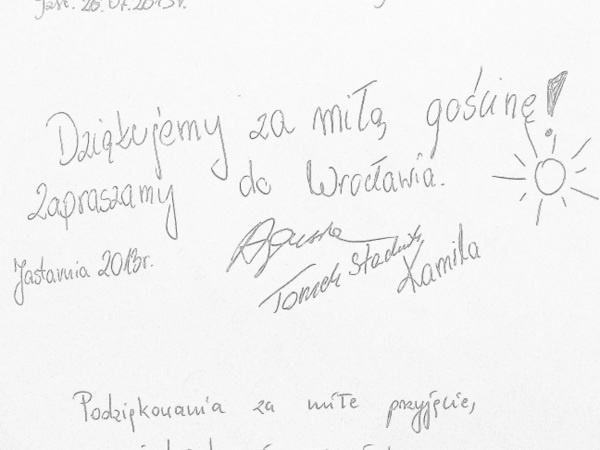 Jast. 26.07.2013r.
Dziękujemy za miłą gościnę!
Zapraszamy do Wrocławia.
Jastarnia 2013r.
Agnieszka
Tomek
Kamila
Podziękowania za miłe przyjęcie,